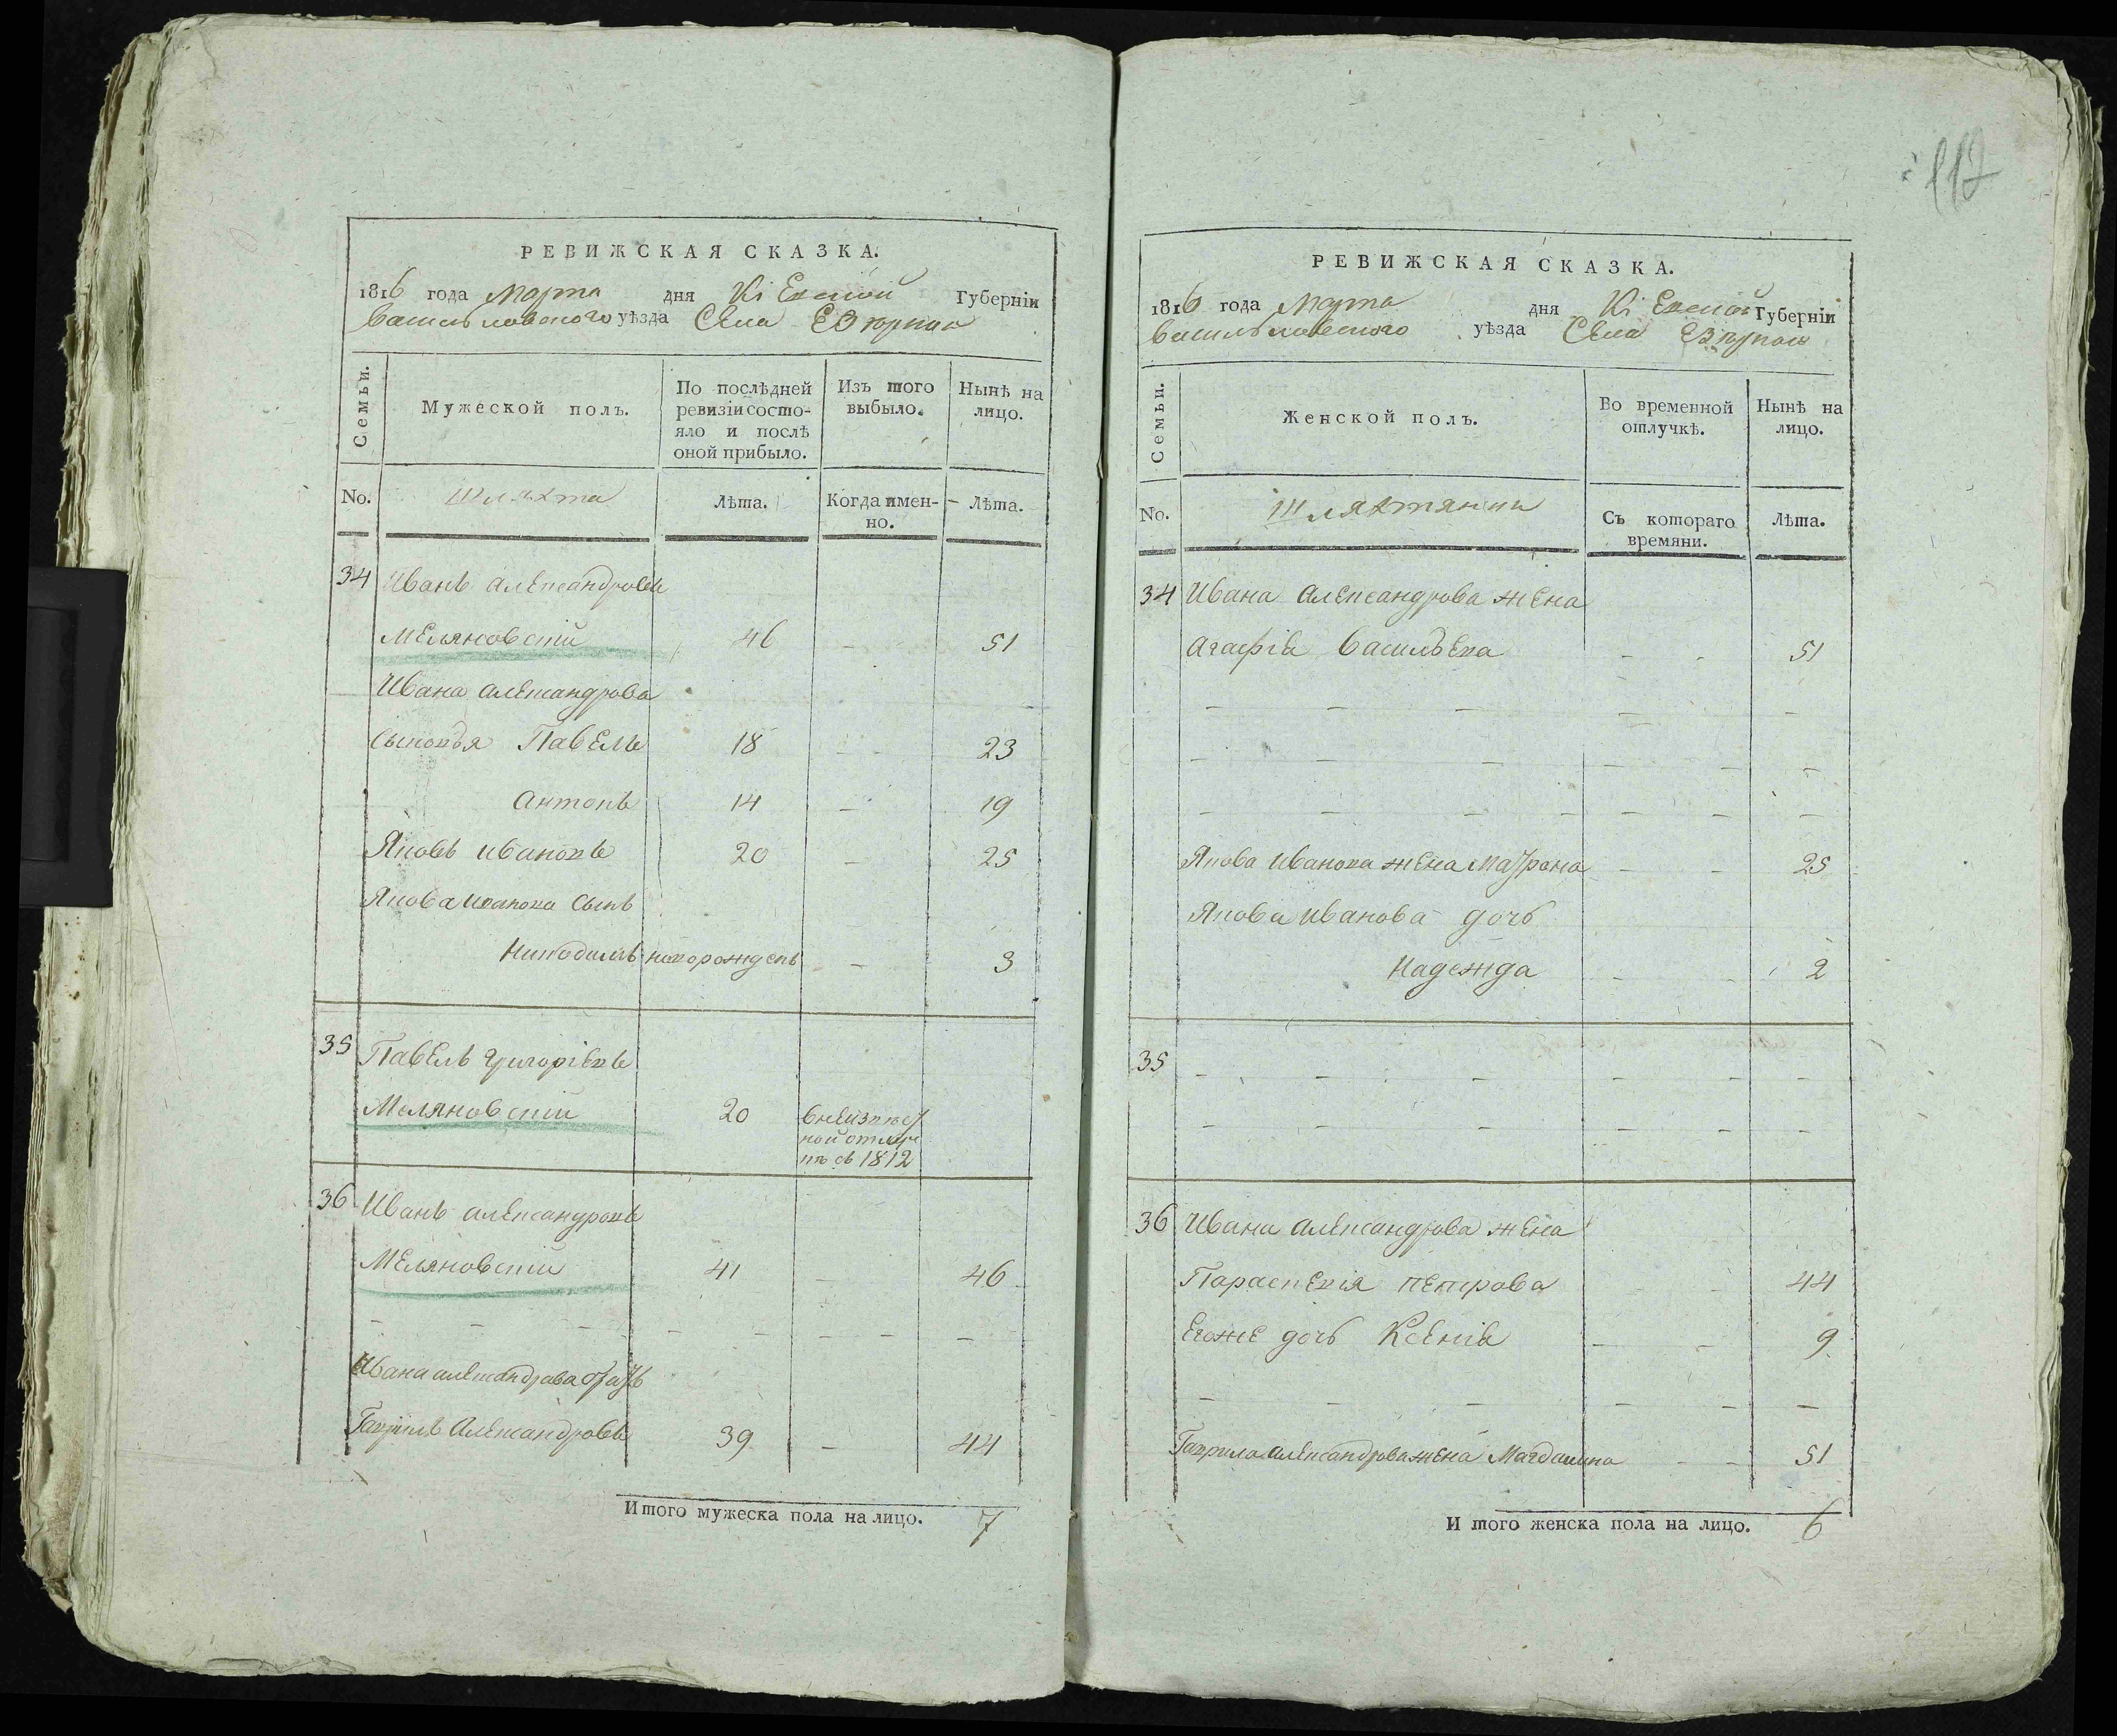 112
РЕВИЖСКАЯ СКАЗКА.
1816 года Марта дня Кіевской Губерніи
Васильковского уѣзда Села
Семьи.
Мужеской полъ.
По послѣдней ревизіи состо-
яло и послѣ
оной прибыло.
Изъ того
выбыло.
Нынѣ на
лицо.
No.
шляхта
Лѣта.
Когда имен-
но.
Лѣта.
34 Иванъ Александровъ
Меляновскій 46 — 51
Ивана Александрова
сыновья Павелъ 18 — 23
Антонъ 14 — 19
Яковъ Ивановъ 20 — 25
Якова Иванова сынъ
Никодимъ новорожденъ — 3
35 Павелъ Григоріевъ
Меляновскій 20 в неизвѣст
ной отлуч
кѣ съ 1812
36 Иванъ Александровъ
Меляновскій 41 — 46
Ивана Александрова братъ
Гаврилъ Александровъ 39 — 44
Итого мужеска пола на лицо. 7
РЕВИЖСКАЯ СКАЗКА.
1816 года Марта дня Кіевской Губерніи
Васильковского уѣзда Села
Семьи.
Женской полъ.
Во временной
отлучкѣ.
Нынѣ на
лицо.
No.
шляхтянки
Съ котораго
времяни.
Лѣта.
34 Ивана Александрова жена
Агафія Васильева — - 51
Якова Иванова жена Матрона — - 25
Якова Иванова дочь
Надежда — - 2
35
36 Ивана Александрова жена
Параскевія Петрова - - 44
Егоже дочь Ксенія — - 9
Гаврила Александрова жена Магдалина — - 51
И того женска пола на лицо. 6